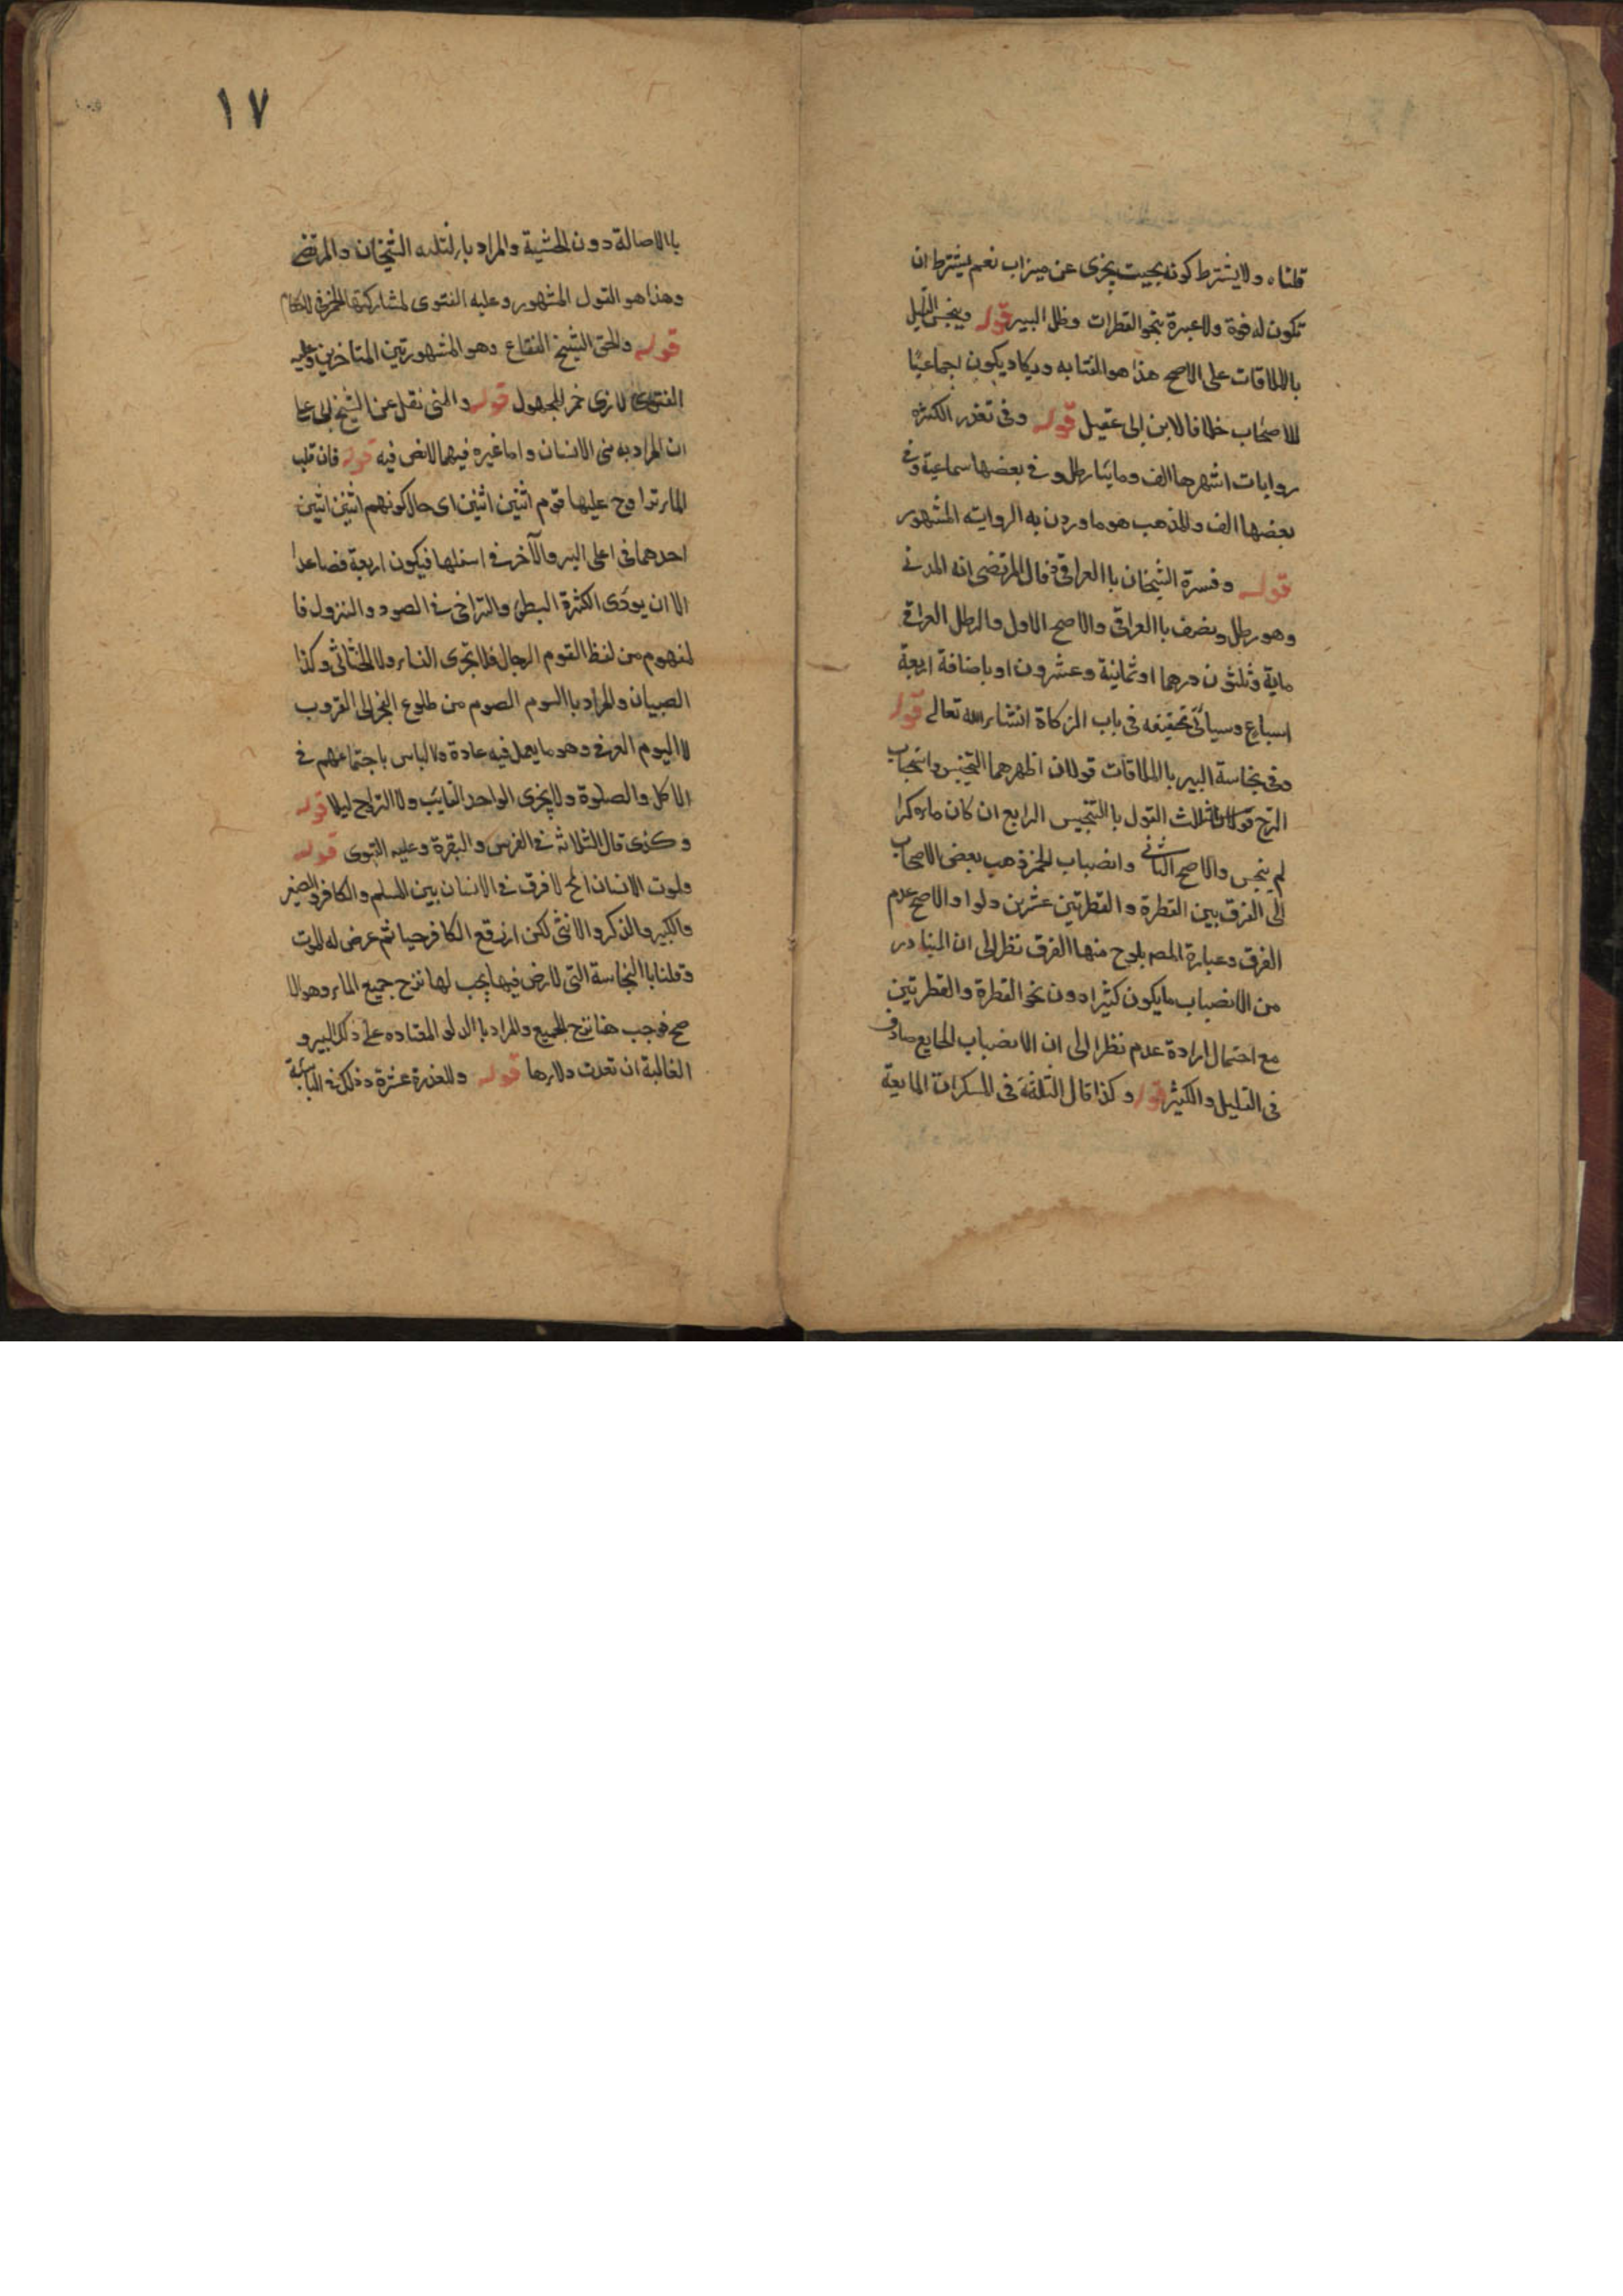 قلناه ولا يشترط كونه بحيث يجرى عن ميزاب نعم يشترط ان
تكون له قوة ولا عبرة بنحو القطرات وظل البير قوله وينجس القليل
بالملاقات على الاصح هذا هو المفتا به ويكاد يكون اجماعيًا
للاصحاب خلافا لابن ابى عقيل قوله وفى تقدر الكثره
روايات اشهرها الف ومايتا رطل و فى بعضها سماعية وفى
بعضها الف والمذهب هو ماوردن به الروايته المشهور
قوله وفسرة الشيخان باالعراقى فقال المرتضى انه المدنى
وهو رطل ونصف باالعراقى والاصح الاول والرطل العراقى
ماية وثلثون درهما او ثمانية وعشرون او باضافة اربعة
اسباع وسيأتى تحقيقه فى باب الزكاة انشاء الله تعالى قوله
وفى نجاسة البير بالملاقات قولان اظهرهما التنجيس واستحباب
النزح الثالث القول باالتنجيس الرابع ان كان ماوه كرا
لم ينجس والاصح الثانى وانصباب الخمر ذهب بعض الاصحاب
الى الفرق بين القطرة والقطرتين عشرين دلوا والاصح عدم
الفرق وعبارة المصه يلوح منها الفرق نظر الى ان المتبادر
من الانصباب مايكون كثيرا دون نحو القطرة والقطرتين
مع احتمال ارادة عدم نظرا الى ان الانصباب لمايع صادق
فى القليل والكثير قوله وكذا قال الثلثة فى المسكرات المايعة
١٧
باالاصالة دون الحشية والمراد الشيخان والمرتضى
وهذا هو القول المشهور وعليه الفتوى لمشاركتها الخمر فى الاحكام
قوله والحق الشيخ الفقاع وهو المشهور بين المتاخرين وعليه
الفتوى خمر المجهول قوله والمنى نقل عن الشيخ ابى على
ان المراد به منى الانسان واما غيره فيهما لا نص فيه قوله فان غلب
الماء تراوح عليها قوم اثنين اثنين اى حال كونهم اثنين اثنين
احدهما فى اعلى البير والآخر فى اسفلها فيكون اربعة فصاعدا
الا ان يودى الكثرة البطئ والتراخى فى الصود والنزول فا
لمفهوم من لفظ القوم الرجال فلا تجرى النساء ولا الخناثى وكذا
الصبيان والمراد باالـيوم الصوم من طلوع الفجر الى الغروب
لا اليوم العرفى وهو مايعمل فيه عادة ولا باس باجتماعهم فى
الاكل والصلوة ولا يجزى الواحد الغايب ولا التراوح ليلا قوله
وكذى قال الثلاثة فى الفرس والبقرة وعليه الفتوى قوله
ولموت الانسان الخ لا فرق فى الانسان بين المسلم والكافر والصغير
والكبير والذكر والانثى لكن ان وقع الكافر حيا ثم عرض له الموت
وقلنا باالنجاسة التى لا نص فيها يجب لها نزح جميع الماء وهو الا
صح فوجب هنا نزح الجميع والمراد باالدلو المعتاده على ذلك البير و
الغالبة ان تعدت دلاءها قوله وللعذرة عشرة وذلك فى اليابسة